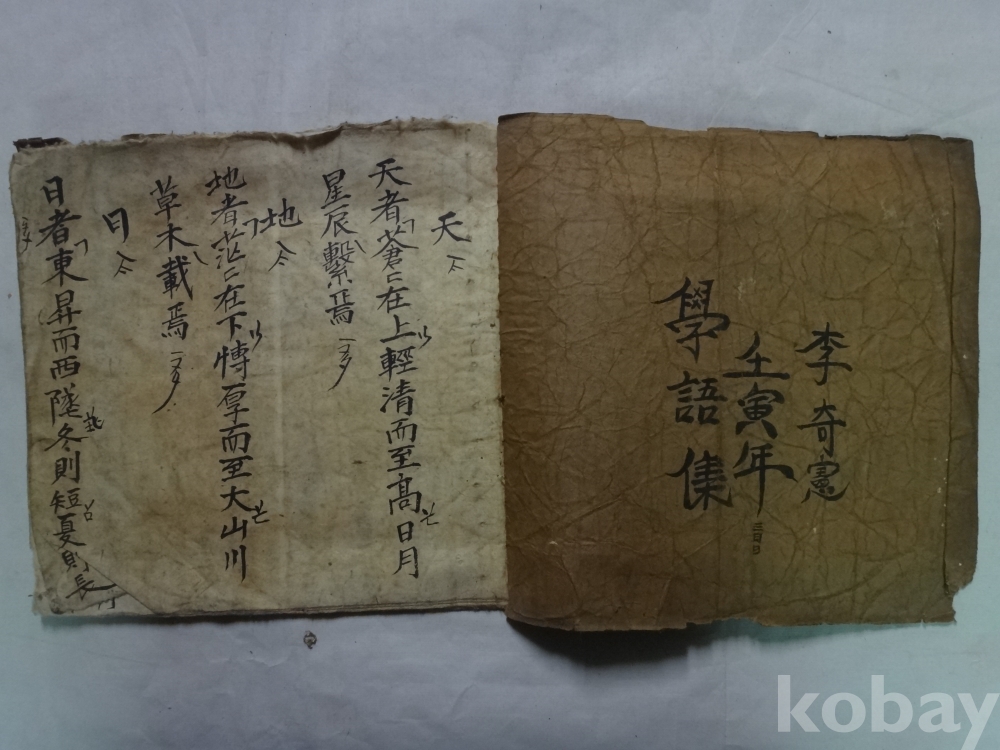 李奇憲
壬寅年
三日日
學語集
天
天者蒼〻在上輕清而至高日月
星辰繫焉
地
地者茫〻在下慱厚而至大山川
草木載焉
日
日者東昇而西墜冬則短夏則長
kobay